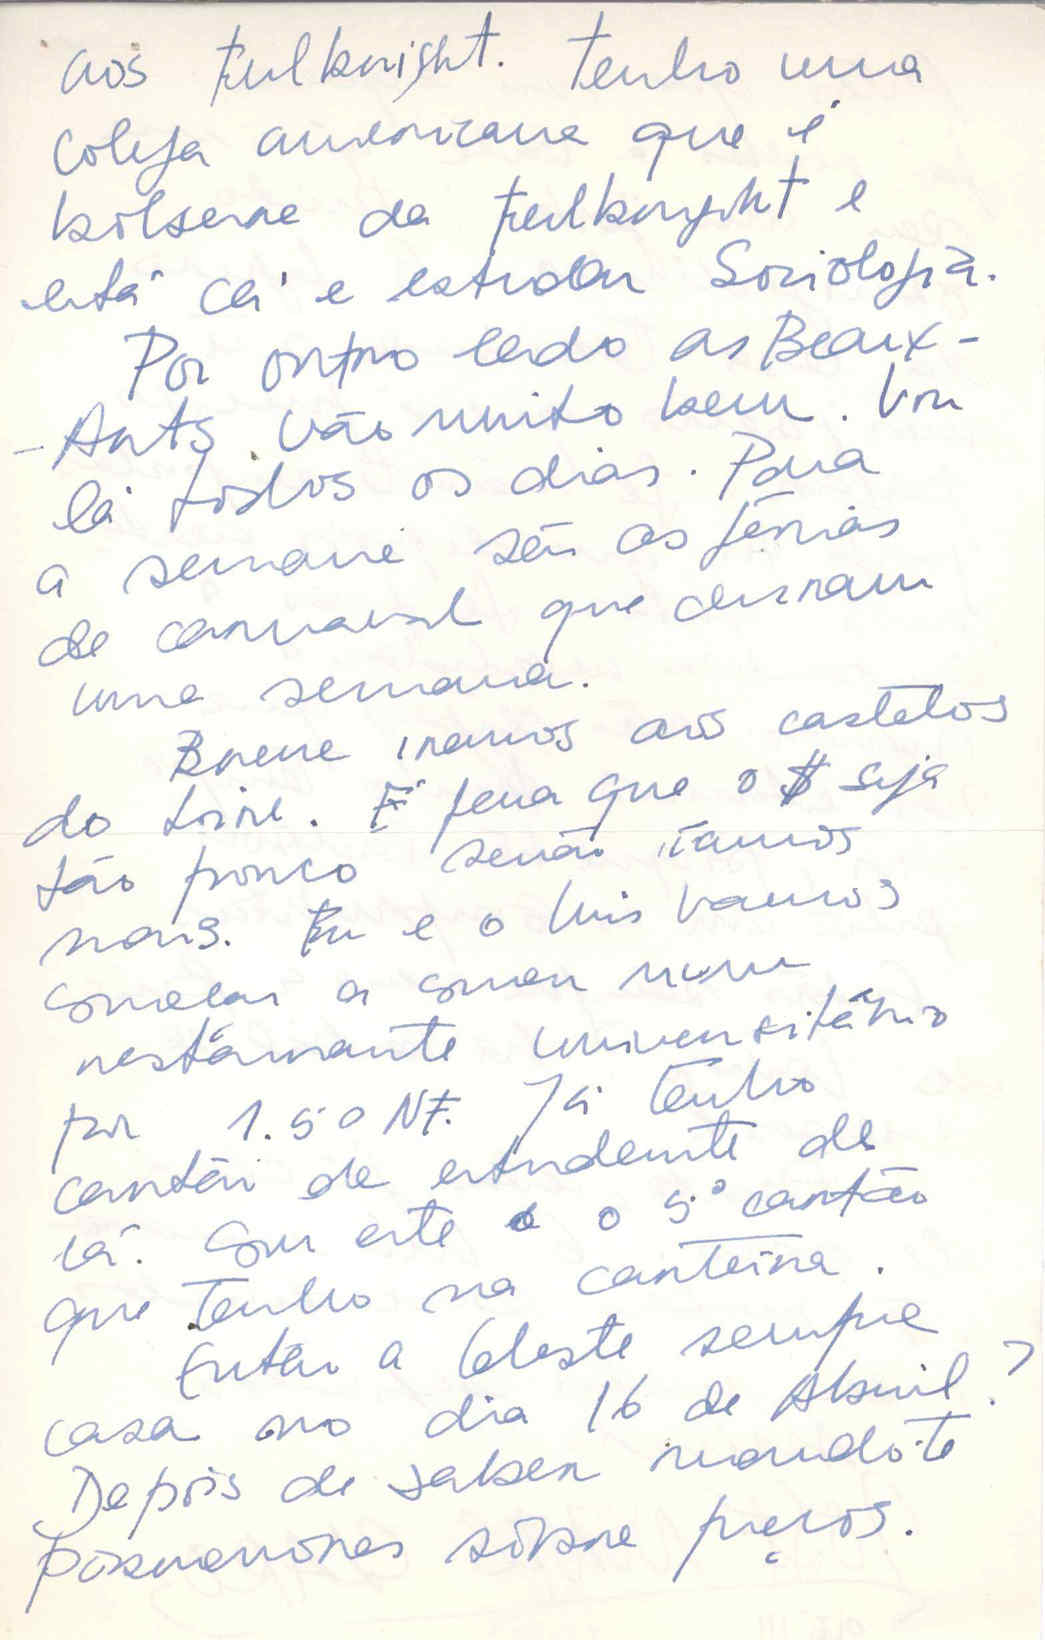 aos Fulbright. Tenho uma
colega americana que é
bolseira da Fulbright e
está cá a estudar Sociologia.
Por outro lado as Beaux-
-Arts vão muito bem. Vou
lá todos os dias. Para
a semana são as férias
de carnaval que duram
uma semana.
Breve iremos aos castelos
do Loire. É pena que o $ seja
tão pouco senão íamos
mais. Eu e o Luis vamos
começar a comer num
restaurante universitário
por 1.50 NF. Já tenho
cartão de estudante de
cá. Com este é o 5º cartão
que tenho na carteira.
Então a Celeste sempre
casa no dia 16 de Abril?
Depois de saber mando-te
pormenores sôbre preços.